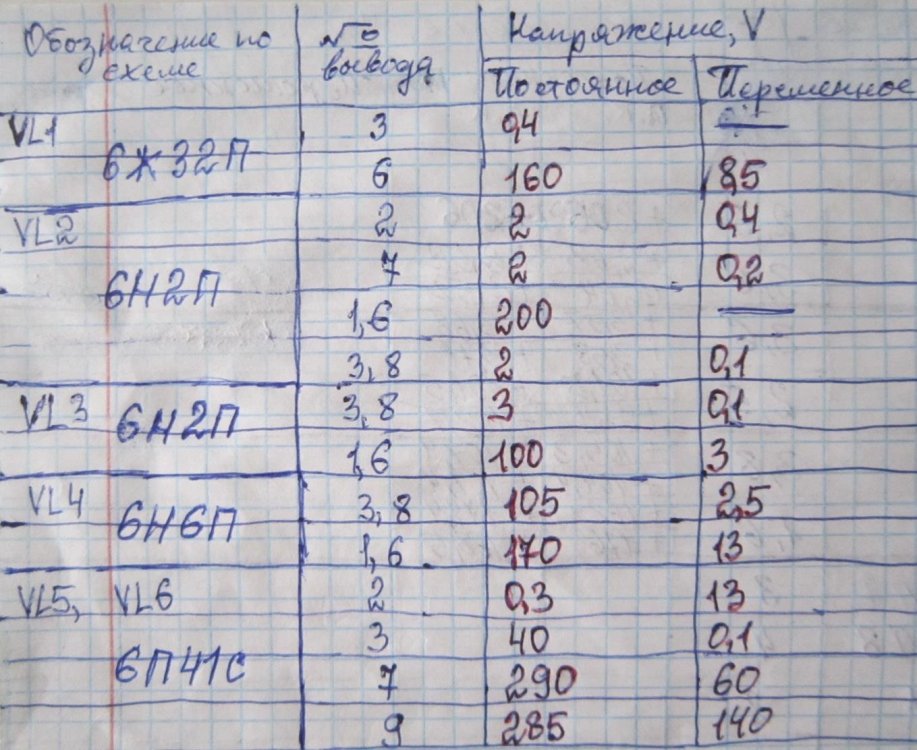 Обозначение по № Напряжение, V
схеме вывода Постоянное Переменное
VL1 3 0,4 —
6Ж32П 6 160 8,5
VL2 2 2 0,4
6Н2П 7 2 0,2
1,6 200 —
3,8 2 0,1
VL3 6Н2П 3,8 3 0,1
1,6 100 3
VL4 6Н6П 3,8 105 2,5
1,6 170 13
VL5, VL6 2 0,3 13
6П41С 3 40 0,1
7 290 60
9 285 140